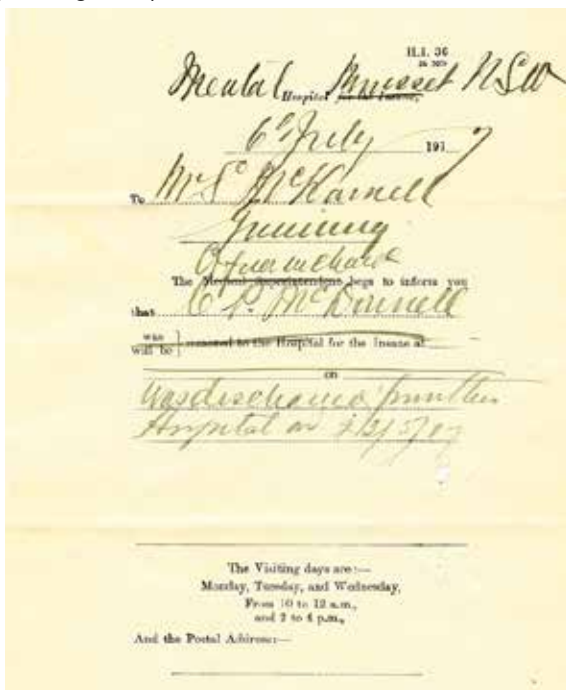 H.I. 36
Mental Hospital for the Insane, NSW
6th July 1917
To Mrs McKarnell
Gunning
Officer in charge
The Medical Superintendent begs to inform you
that C P. McDonnell
was
will be } removed to the Hospital for the Insane at
on
Was discharged from this
Hospital on
The Visiting days are:—
Monday, Tuesday, and Wednesday,
From 10 to 12 a.m.,
and 2 to 4 p.m.,
And the Postal Address:—